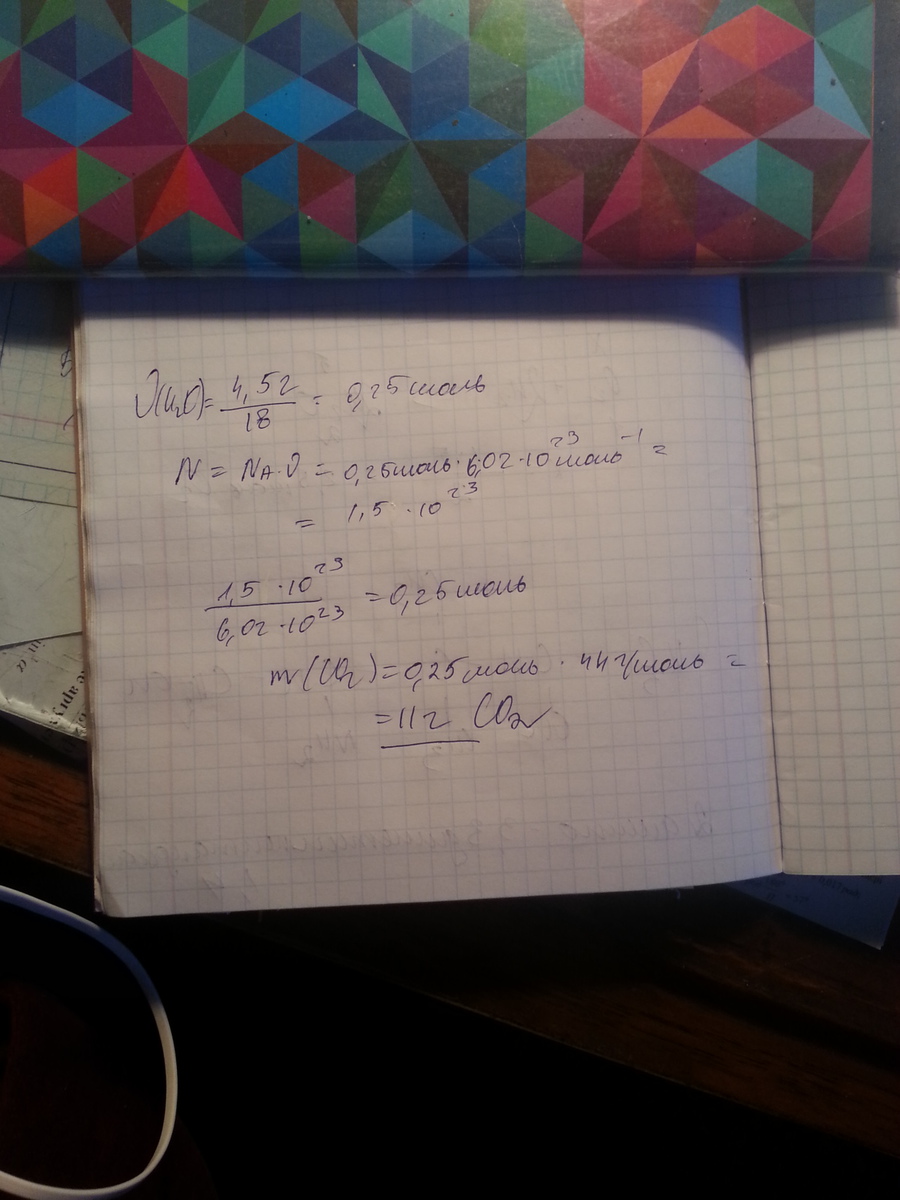 ν(H₂O) = 4,5г / 18 = 0,25 моль
N = NA · ν = 0,25 моль · 6,02 · 10²³ моль⁻¹ =
= 1,5 · 10²³
1,5 · 10²³ / 6,02 · 10²³ = 0,25 моль
m(CO₂) = 0,25 моль · 44 г/моль =
= 11 г CO₂